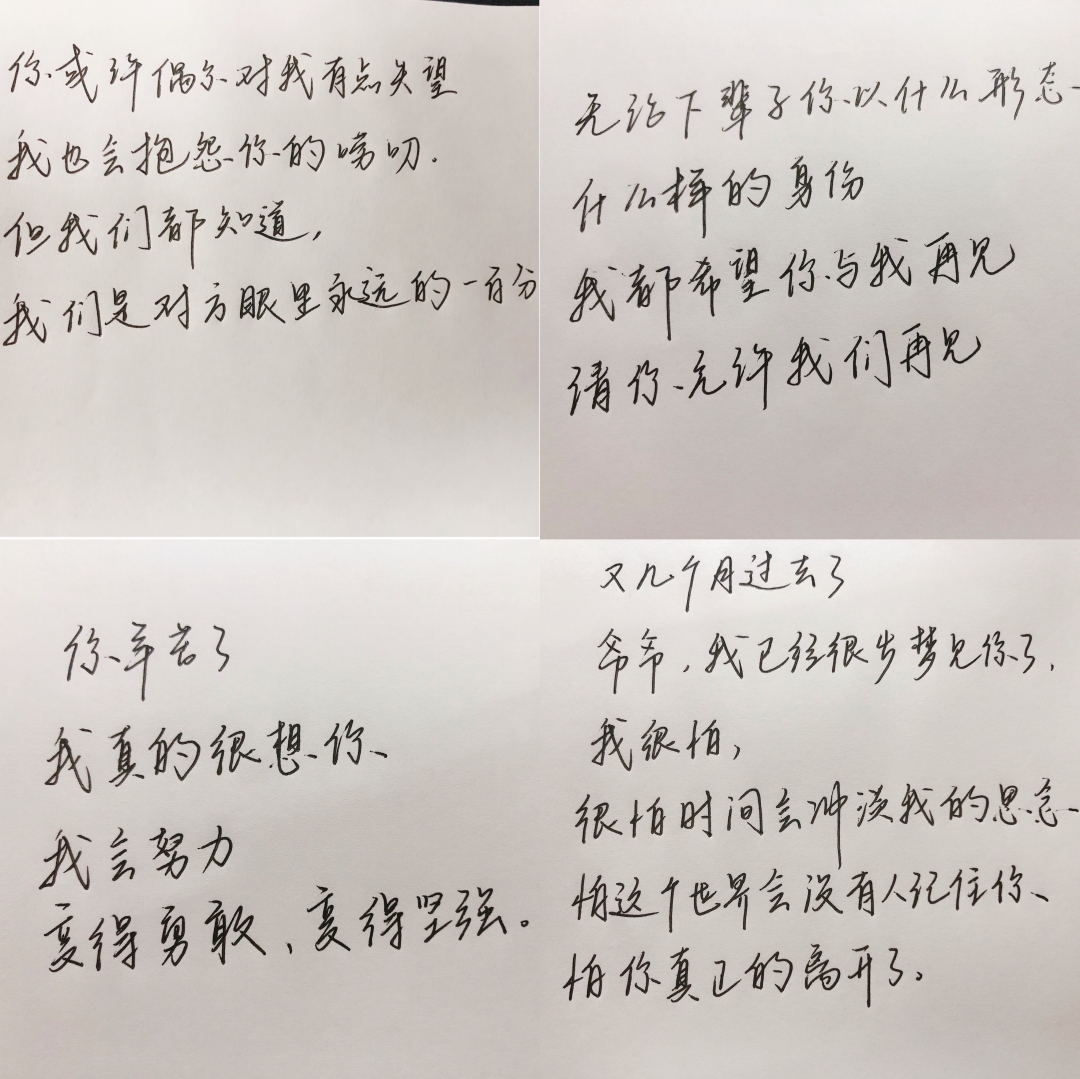 你或许偶尔对我有点失望
我也会抱怨你的唠叨.
但我们都知道,
我们是对方眼里永远的一百分
无论下辈子你以什么形态
什么样的身份
我都希望你与我再见
请你允许我们再见
你辛苦了
我真的很想你、
我会努力
变得勇敢、变得坚强。
又几个月过去了
爷爷,我已经很少梦见你了,
我很怕,
很怕时间会冲淡我的思念
怕这个世界会没有人记住你、
怕你真正的离开了。